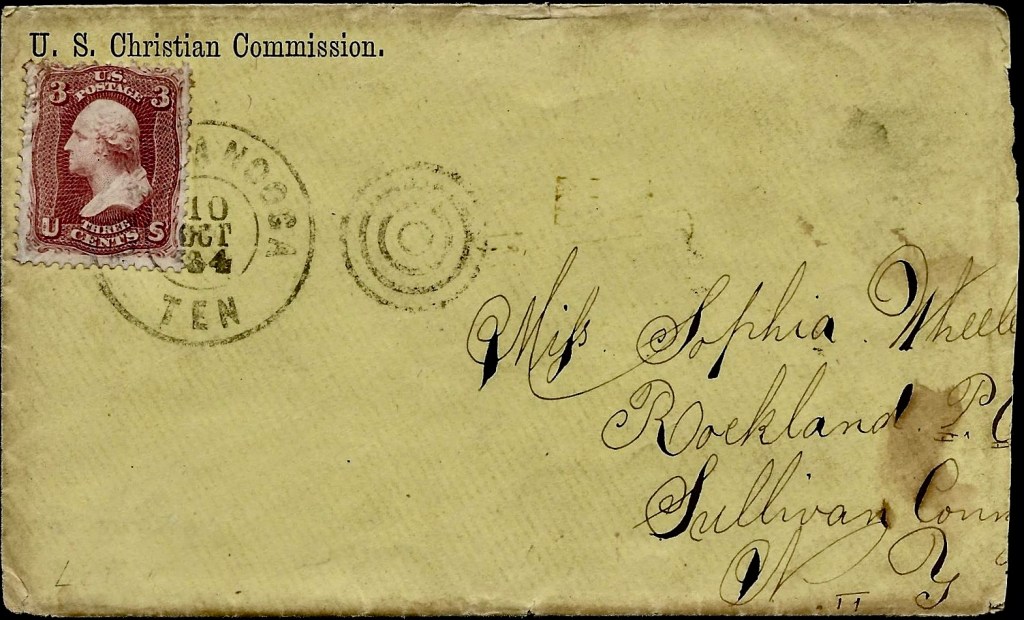 U. S. Christian Commission.
3 U.S. POSTAGE 3
U THREE CENTS S
ANOOGA
10
OCT
64
TEN
Miss Sophia Wheele
Rockland P. O
Sullivan Coun
N Y